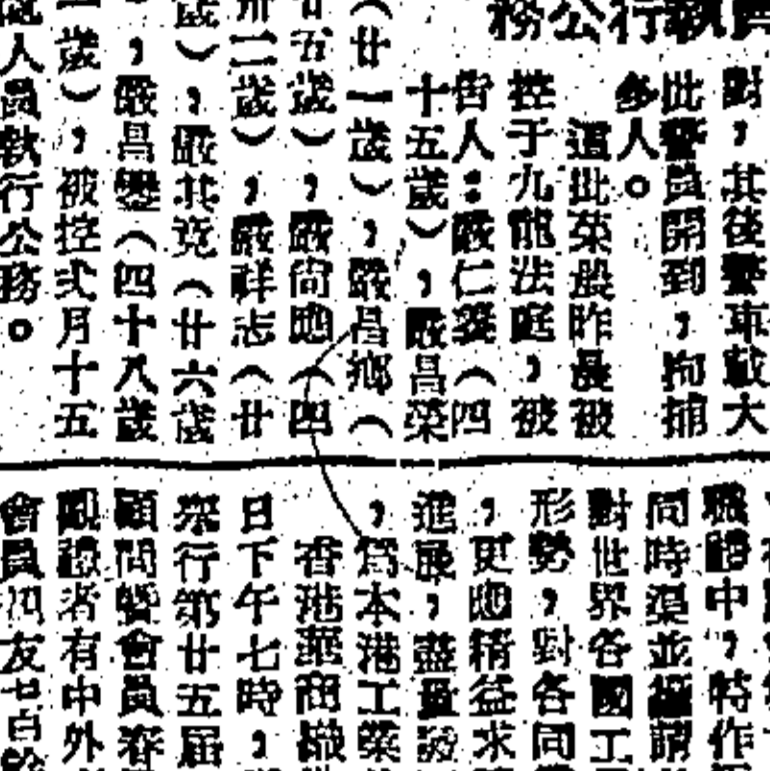 執行公務
對，其後警車載大
此警員開到，拘捕
多人。
這批菜昨晨被
控于九龍法庭，被
告人：嚴仁（四
十五歲），嚴昌榮
（廿一歲），嚴昌鄉（
廿五歲），嚴尙應（四
卅二歲），嚴祥志（廿
歲），嚴其（廿六歲
，嚴昌鑾（四十八歲
一歲），被控弍月十五
人員執行公務。
中，特作
同時並請
對世界各國工
形勢，對各同
，更應精益求
進展，盡量
，爲本港工業
香港華商織
日下午七時，
舉行第廿五届
顧問曁會員春
觀禮者有中外
會員友